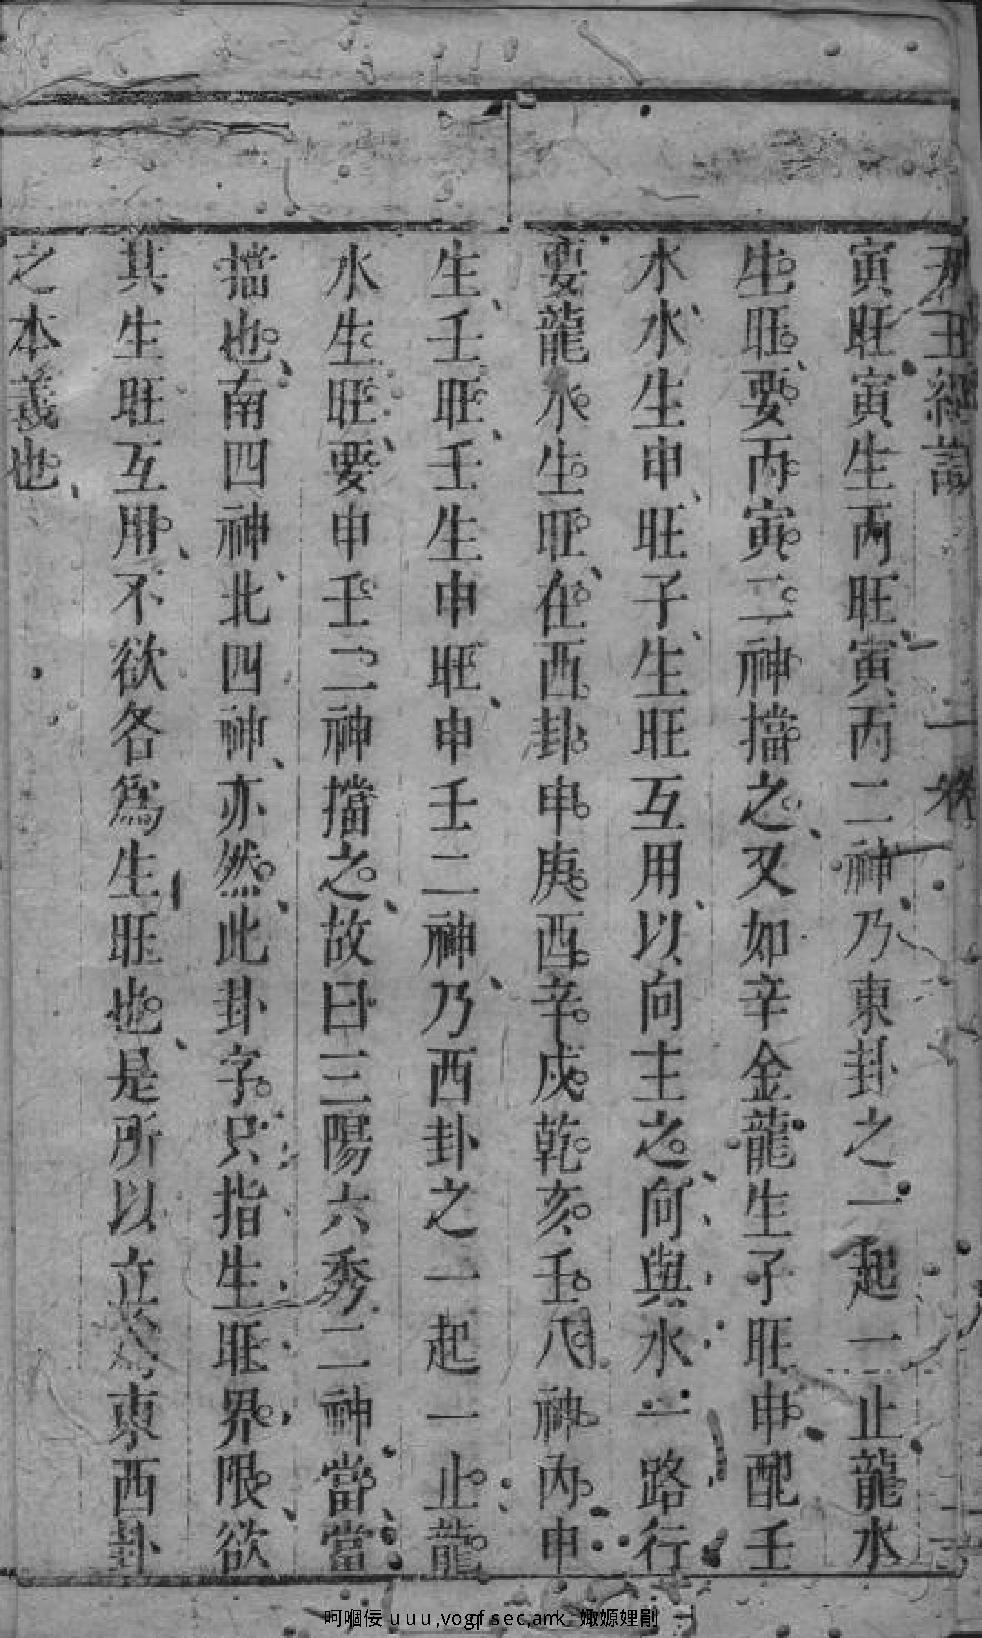 一卷
寅旺寅生丙旺寅丙二神乃東卦之一起一止龍水
生旺要丙寅二神擋之又如辛金龍生子旺申配壬
水水生申旺子生旺互用以向主之向與水一路行
要龍水生旺在西卦申庚酉辛戌乾亥壬八神內申
生壬旺壬生申旺申壬二神乃西卦之一起一止龍
水生旺要申壬二神擋之故曰三陽六秀二神當當
擋也南四神北四神亦然此卦字只指生旺界限欲
其生旺互用不欲各為生旺也是所以立為東西卦
之本義也